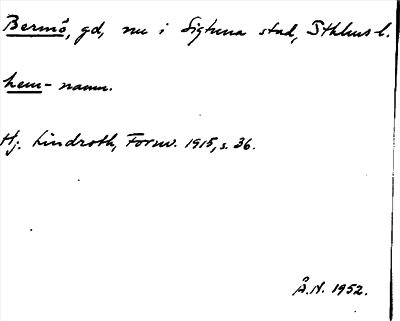 Bermö, gd, nu i Sigtuna stad, Sthlms l.
hem- namn.
Hj. Lindroth, Fornv. 1915, s. 36.
Å.N. 1952.